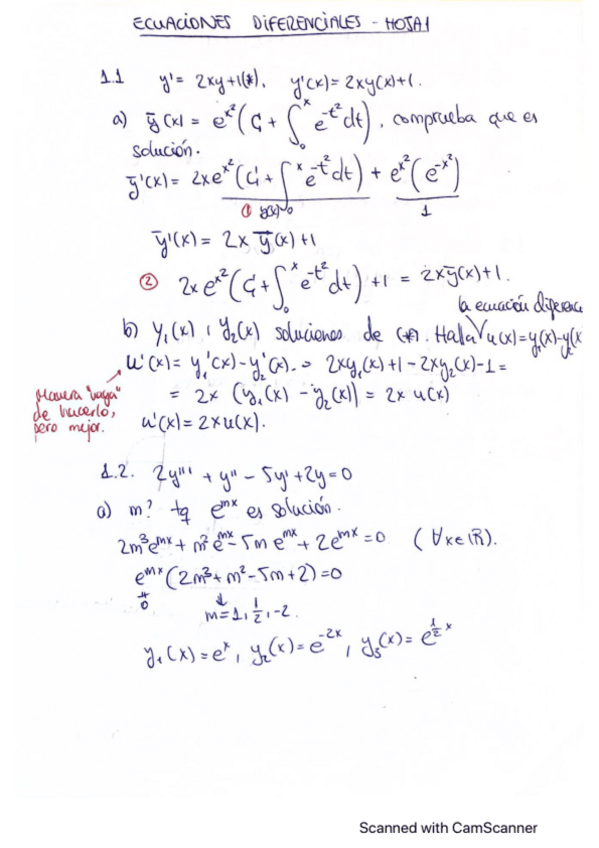 ECUACIONES DIFERENCIALES - HOJA 1
1.1 y' = 2xy+1(*). y'(x) = 2xy(x)+1.
a) ȳ(x) = e^{x²}(C₁ + ∫₀^x e^{-t²}dt), comprueba que es
solución.
ȳ'(x) = 2xe^{x²}(C₁ + ∫₀^x e^{-t²}dt) + e^{x²}(e^{-x²})
① 1
ȳ'(x) = 2x ȳ(x) + 1
② 2xe^{x²}(C₁ + ∫₀^x e^{-t²}dt) + 1 = 2xȳ(x)+1.
la ecuación diferenc
b) y₁(x), y₂(x) soluciones de (*). Halla u(x)=y₁(x)-y₂(x
u'(x) = y₁'(x) - y₂'(x). => 2xy₁(x)+1-2xy₂(x)-1 =
Manera "vaga"
de hacerlo,
pero mejor.
= 2x (y₁(x) - y₂(x)) = 2x u(x)
u'(x) = 2xu(x).
1.2. 2y''' + y'' - 5y' + 2y = 0
a) m? tq e^{mx} es solución.
2m³e^{mx} + m²e^{mx} - 5m e^{mx} + 2e^{mx} = 0 (∀x∈ℝ).
e^{mx}(2m³+m²-5m+2) = 0
≠ 0
m = 1, 1/2, -2.
y₁(x) = e^x, y₂(x) = e^{-2x}, y₃(x) = e^{1/2 x}
Scanned with CamScanner